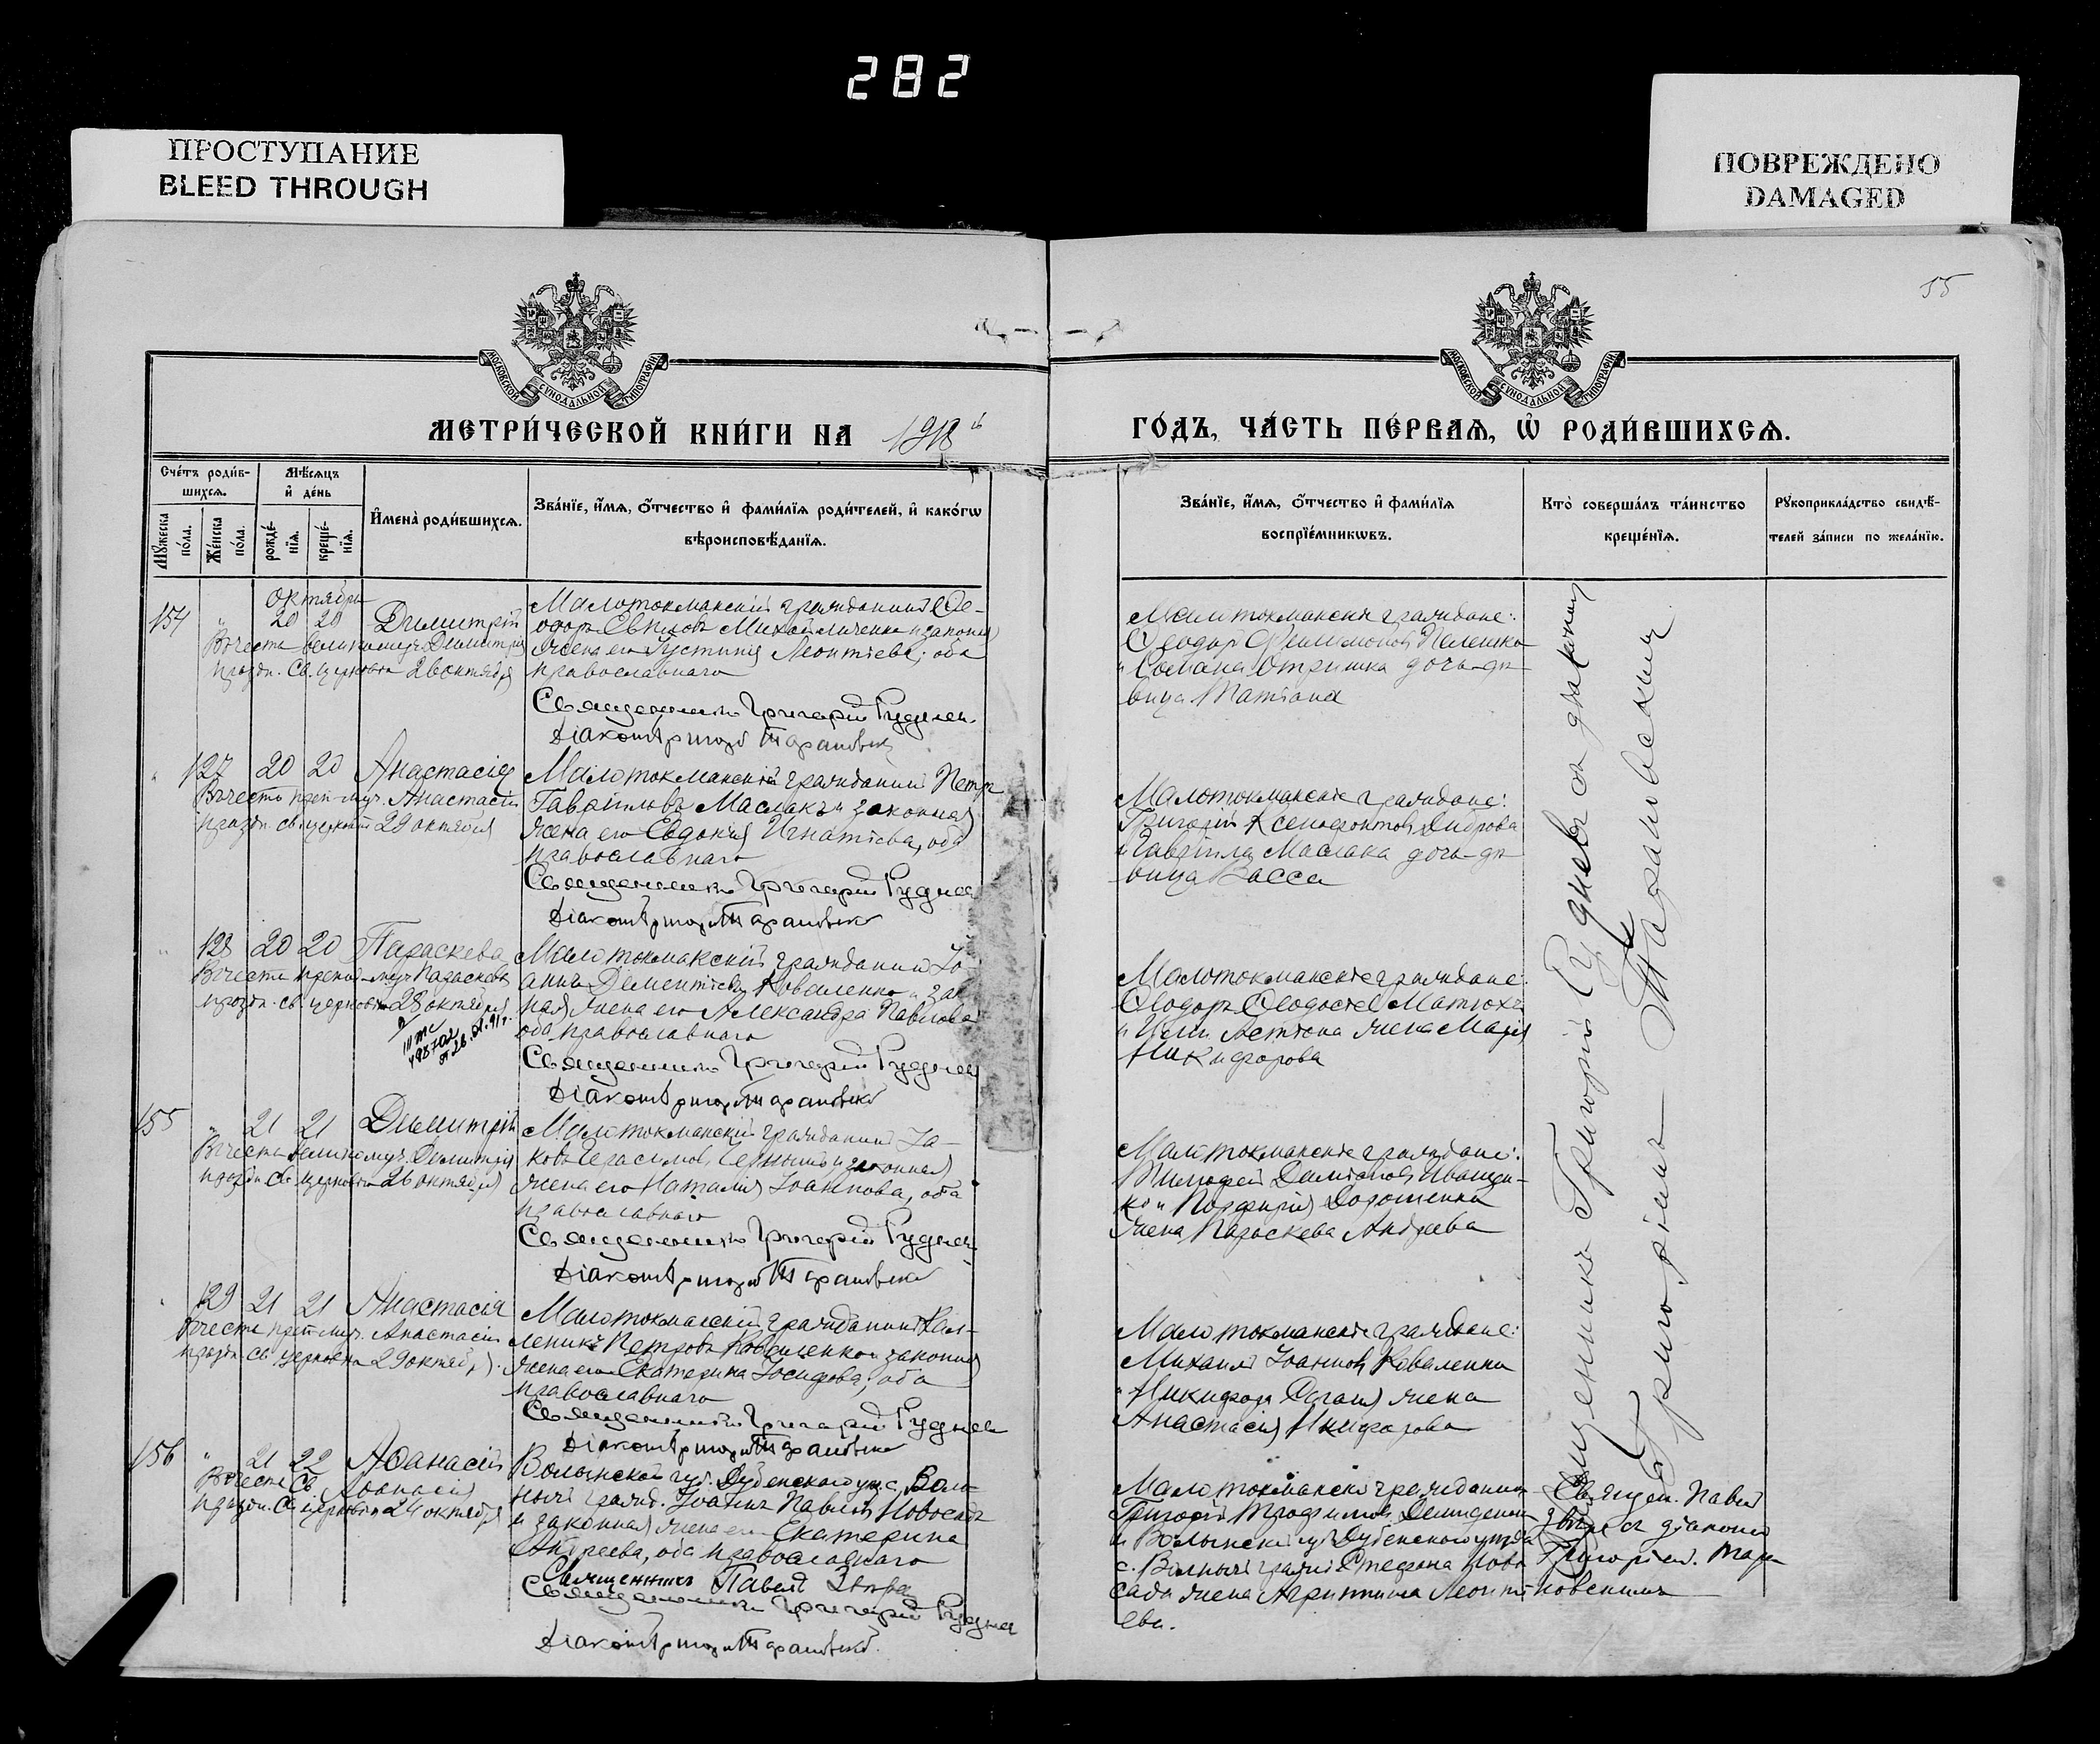 282
ПРОСТУПАНИЕ
BLEED THROUGH
ПОВРЕЖДЕНО
DAMAGED
55
МОСКОВСКОЙ СѴНОДАЛЬНОЙ ТИПОГРАФІИ
МОСКОВСКОЙ СѴНОДАЛЬНОЙ ТИПОГРАФІИ
МЕТРИ́ЧЕСКОЙ КНИ́ГИ НА 1918
ГО́ДЪ, ЧА́СТЬ ПЕ́РВАѦ, Ѿ РОДИ́ВШИХСѦ.
Сче́тъ роди́в-
шихсѧ.
Мꙋжеска
по́ла.
Же́нска
по́ла.
Мѣ́сѧцъ
и҆ де́нь
рожде́-
нїѧ.
креще́-
нїѧ.
И҆мена̀ роди́вшихсѧ.
Зва́нїе, и҆́мѧ, ѻ҆́тчество и҆ фами́лїѧ роди́телей, и҆ како́гѡ
вѣроисповѣ́данїѧ.
Зва́нїе, и҆́мѧ, ѻ҆́тчество и҆ фами́лїѧ
воспрїе́мникѡвъ.
Кто̀ соверша́лъ та́инство
креще́нїѧ.
Рꙋкоприкла́дство свидѣ́-
телей за́писи по жела́нїю.
октября
154 " 20 20 Димитрій
Въ честь великомуч. Димитрія
праздн. св. церковью 26 октября
Малотокмакскій гражданинъ Ѳе-
одоръ Михайличенко и законная
жена его Іустинія Леонтіева; оба
православнаго
Священникъ Григорій Рудневъ
Діаконъ Григорій Тарановскій
Малотокмакскіе граждане:
Ѳеодоръ Филимоновъ
и дочь-дѣ-
вица Татіана
" 127 20 20 Анастасія
Въ честь преп-муч. Анастасіи
праздн. св. церковью 29 октября
Малотокмакскій гражданинъ Петръ
Гавріиловъ Маслакъ и законная
жена его Евдокія Игнатіева, оба
православнаго
Священникъ Григорій Рудневъ
Діаконъ Григорій Тарановскій
Малотокмакскіе граждане:
Григорій Ксенофонтовъ Диброва
и Гавріила Маслака дочь-дѣ-
вица Васса
" 128 20 20 Параскева
Въ честь препод-муч. Параскевы
праздн. св. церковью 28 октября
Малотокмакскій гражданинъ Іо-
аннъ Дементіевъ Коваленко и закон
ная жена его Александра Павлова
оба православнаго
Священникъ Григорій Рудневъ
Діаконъ Григорій Тарановскій
Малотокмакскіе граждане:
Ѳеодоръ Ѳеодосіевъ
и жена Марія
Никифорова
155 " 21 21 Димитрій
Въ честь великомуч. Димитрія
праздн. св. церковью 26 октября
Малотокмакскій гражданинъ Іа-
ковъ Герасимовъ и законная
жена его Наталія Іоаннова, оба
православнаго
Священникъ Григорій Рудневъ
Діаконъ Григорій Тарановскій
Малотокмакскіе граждане:
Тимофей Даміановъ Иващен-
ко и Порфирія Дорошенка
жена Параскева Андреева
" 129 21 21 Анастасія
Въ честь преп-муч. Анастасіи
праздн. св. церковью 29 октября
Малотокмакскій гражданинъ Кал-
леникъ Петровъ Коваленко и законная
жена его Екатерина Іосифова; оба
православнаго
Священникъ Григорій Рудневъ
Діаконъ Григорій Тарановскій
Малотокмакскіе граждане:
Михаилъ Іоанновъ Коваленко
и Никифора жена
Анастасія Никифорова
156 " 21 22 Аѳанасій
Въ честь св. Аѳанасія
праздн. св. церковью 24 октября
Волынской губ. Дубенского уѣ. с. Воль-
ный гражд. Іоаннъ Павловъ Новосадъ
и законная жена его Екатерина
Андреева, оба православнаго
Священникъ Павелъ
Священникъ Григорій Рудневъ
Діаконъ Григорій Тарановскій
Малотокмакскій гражданинъ
Григорій Трофимовъ Демиденко
и Волынской губ. Дубенского уѣзда
с. Вольный гражд. Стефана Ново
сада жена Агриппина Леонті
ева.
Священникъ Григорій Рудневъ съ діакономъ
Григоріемъ Тарановскимъ
Священ. Павелъ
съ діакономъ
Григоріем. Тара
новскимъ